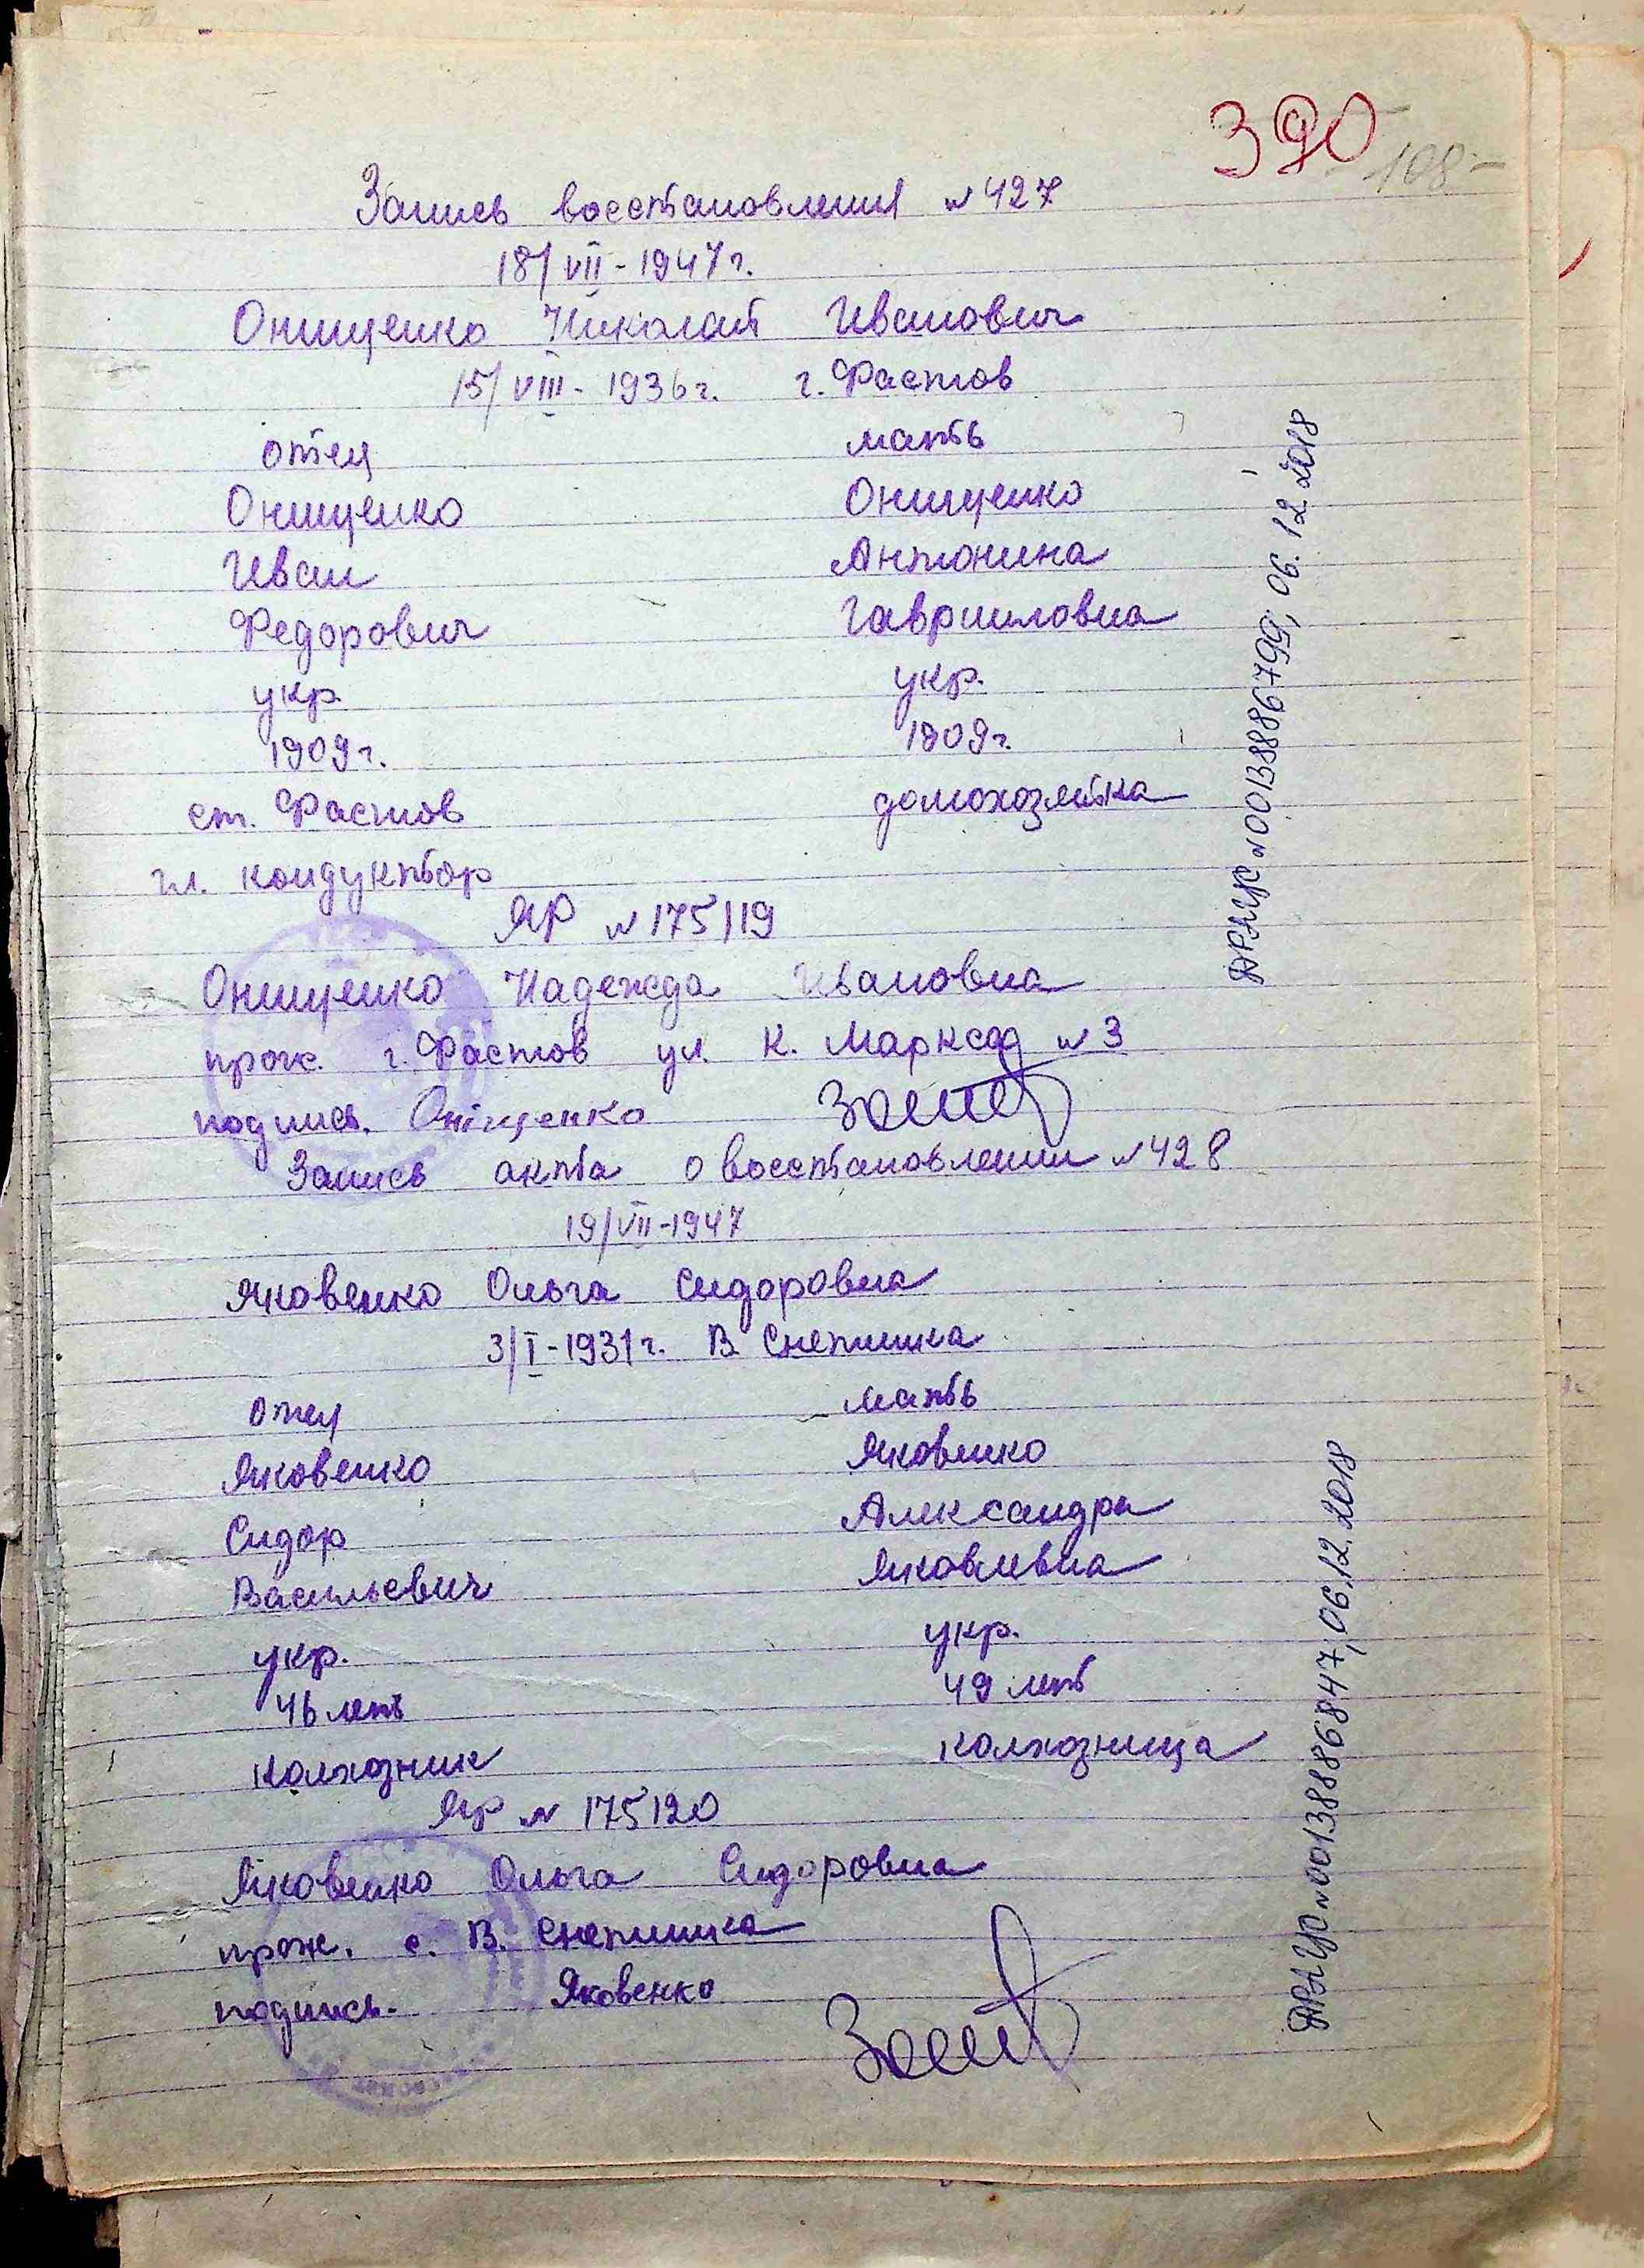 390
108-
Запись восстановления №427
18/VII-1947г.
Онищенко Николай Иванович
15/VIII-1936г. г. Фастов
отец мать
Онищенко Онищенко
Иван Антонина
Федорович Гаврииловна
укр. укр.
1909г. 1909г.
ст. Фастов домохозяйка
гл. кондуктор
ЯР №175119
Онищенко Надежда Ивановна
прож. г. Фастов ул. К. Маркса №3
подпись. Оніщенко
Запись акта о восстановлении №428
19/VII-1947
Яковенко Ольга Сидоровна
3/I-1931г. В. Снетинка
отец мать
Яковенко Яковенко
Сидор Александра
Васильевич Яковлевна
укр. укр.
46 лет 49 лет
колхозник колхозница
ЯР №175120
Яковенко Ольга Сидоровна
прож. с. В. Снетинка
подпись. Яковенко
ДРАЦС №00138886799, 06.12.2018
ДРАЦС №00138886847, 06.12.2018